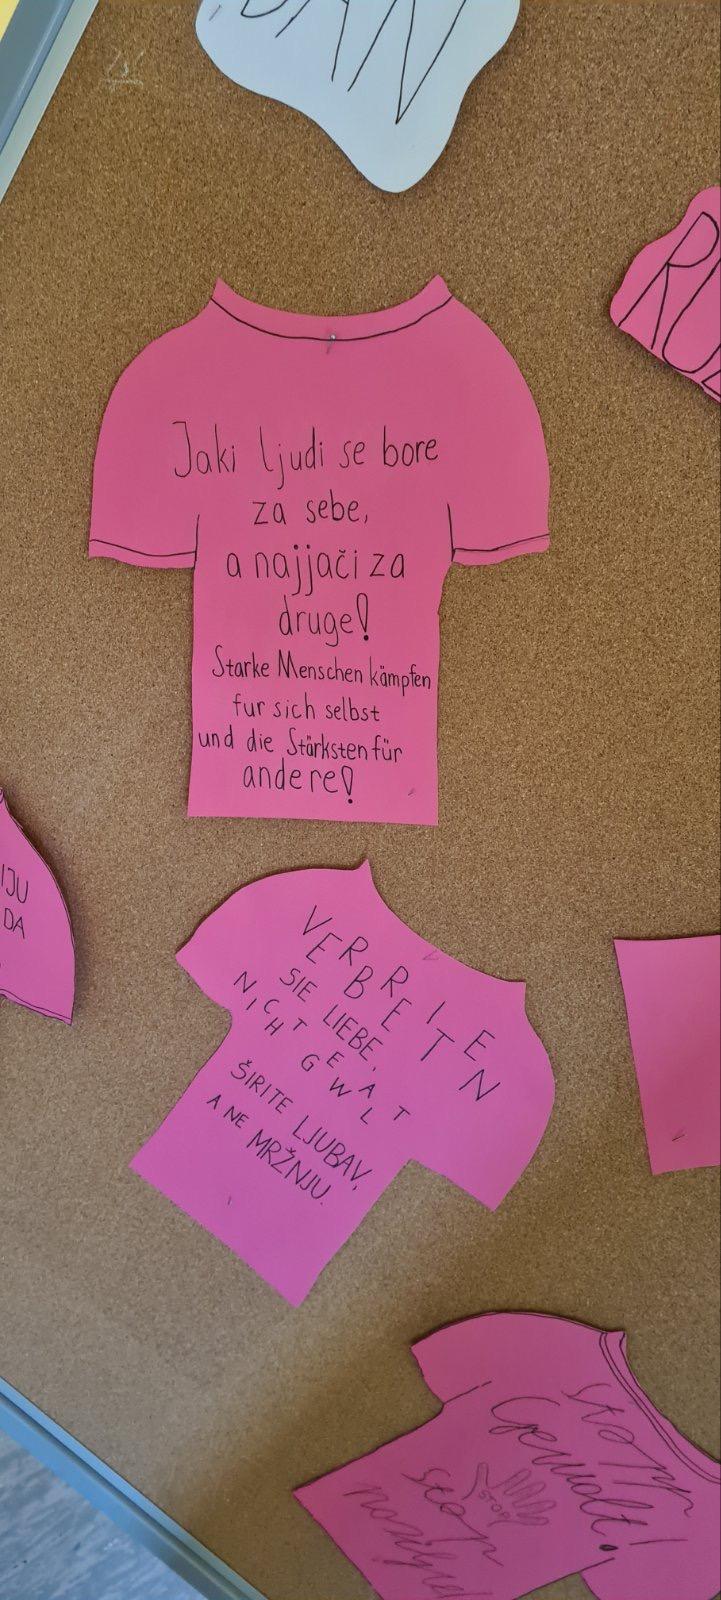 DAN
Jaki ljudi se bore
za sebe,
a najjači za
druge!
Starke Menschen kämpfen
fur sich selbst
und die Stärksten für
andere!
IJU
DA
VERBREITEN
SIE LIEBE,
NICHT GEWALT
ŠIRITE LJUBAV,
A NE
MRŽNJU.
Stopp
Gewalt!
STOP
stop